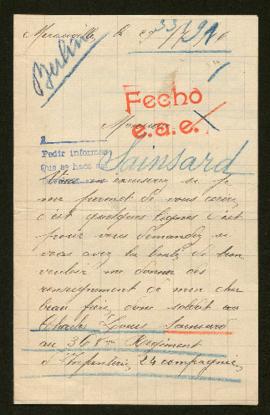 Berlin
Fecho
e.a.e.
Pedir informes
que se hace de
Sainsard
m'excuserez si je
me permet de vous écrire
c'est quelques lignes c'est
pour vous demandez si
vous avez la bonté de bien
vouloir me donner des
renseignement de mon cher
beau frère, como soldat au
Charles Louis Sainsard
au 368me Regiment
d'Infanterie, 24 compagnie,